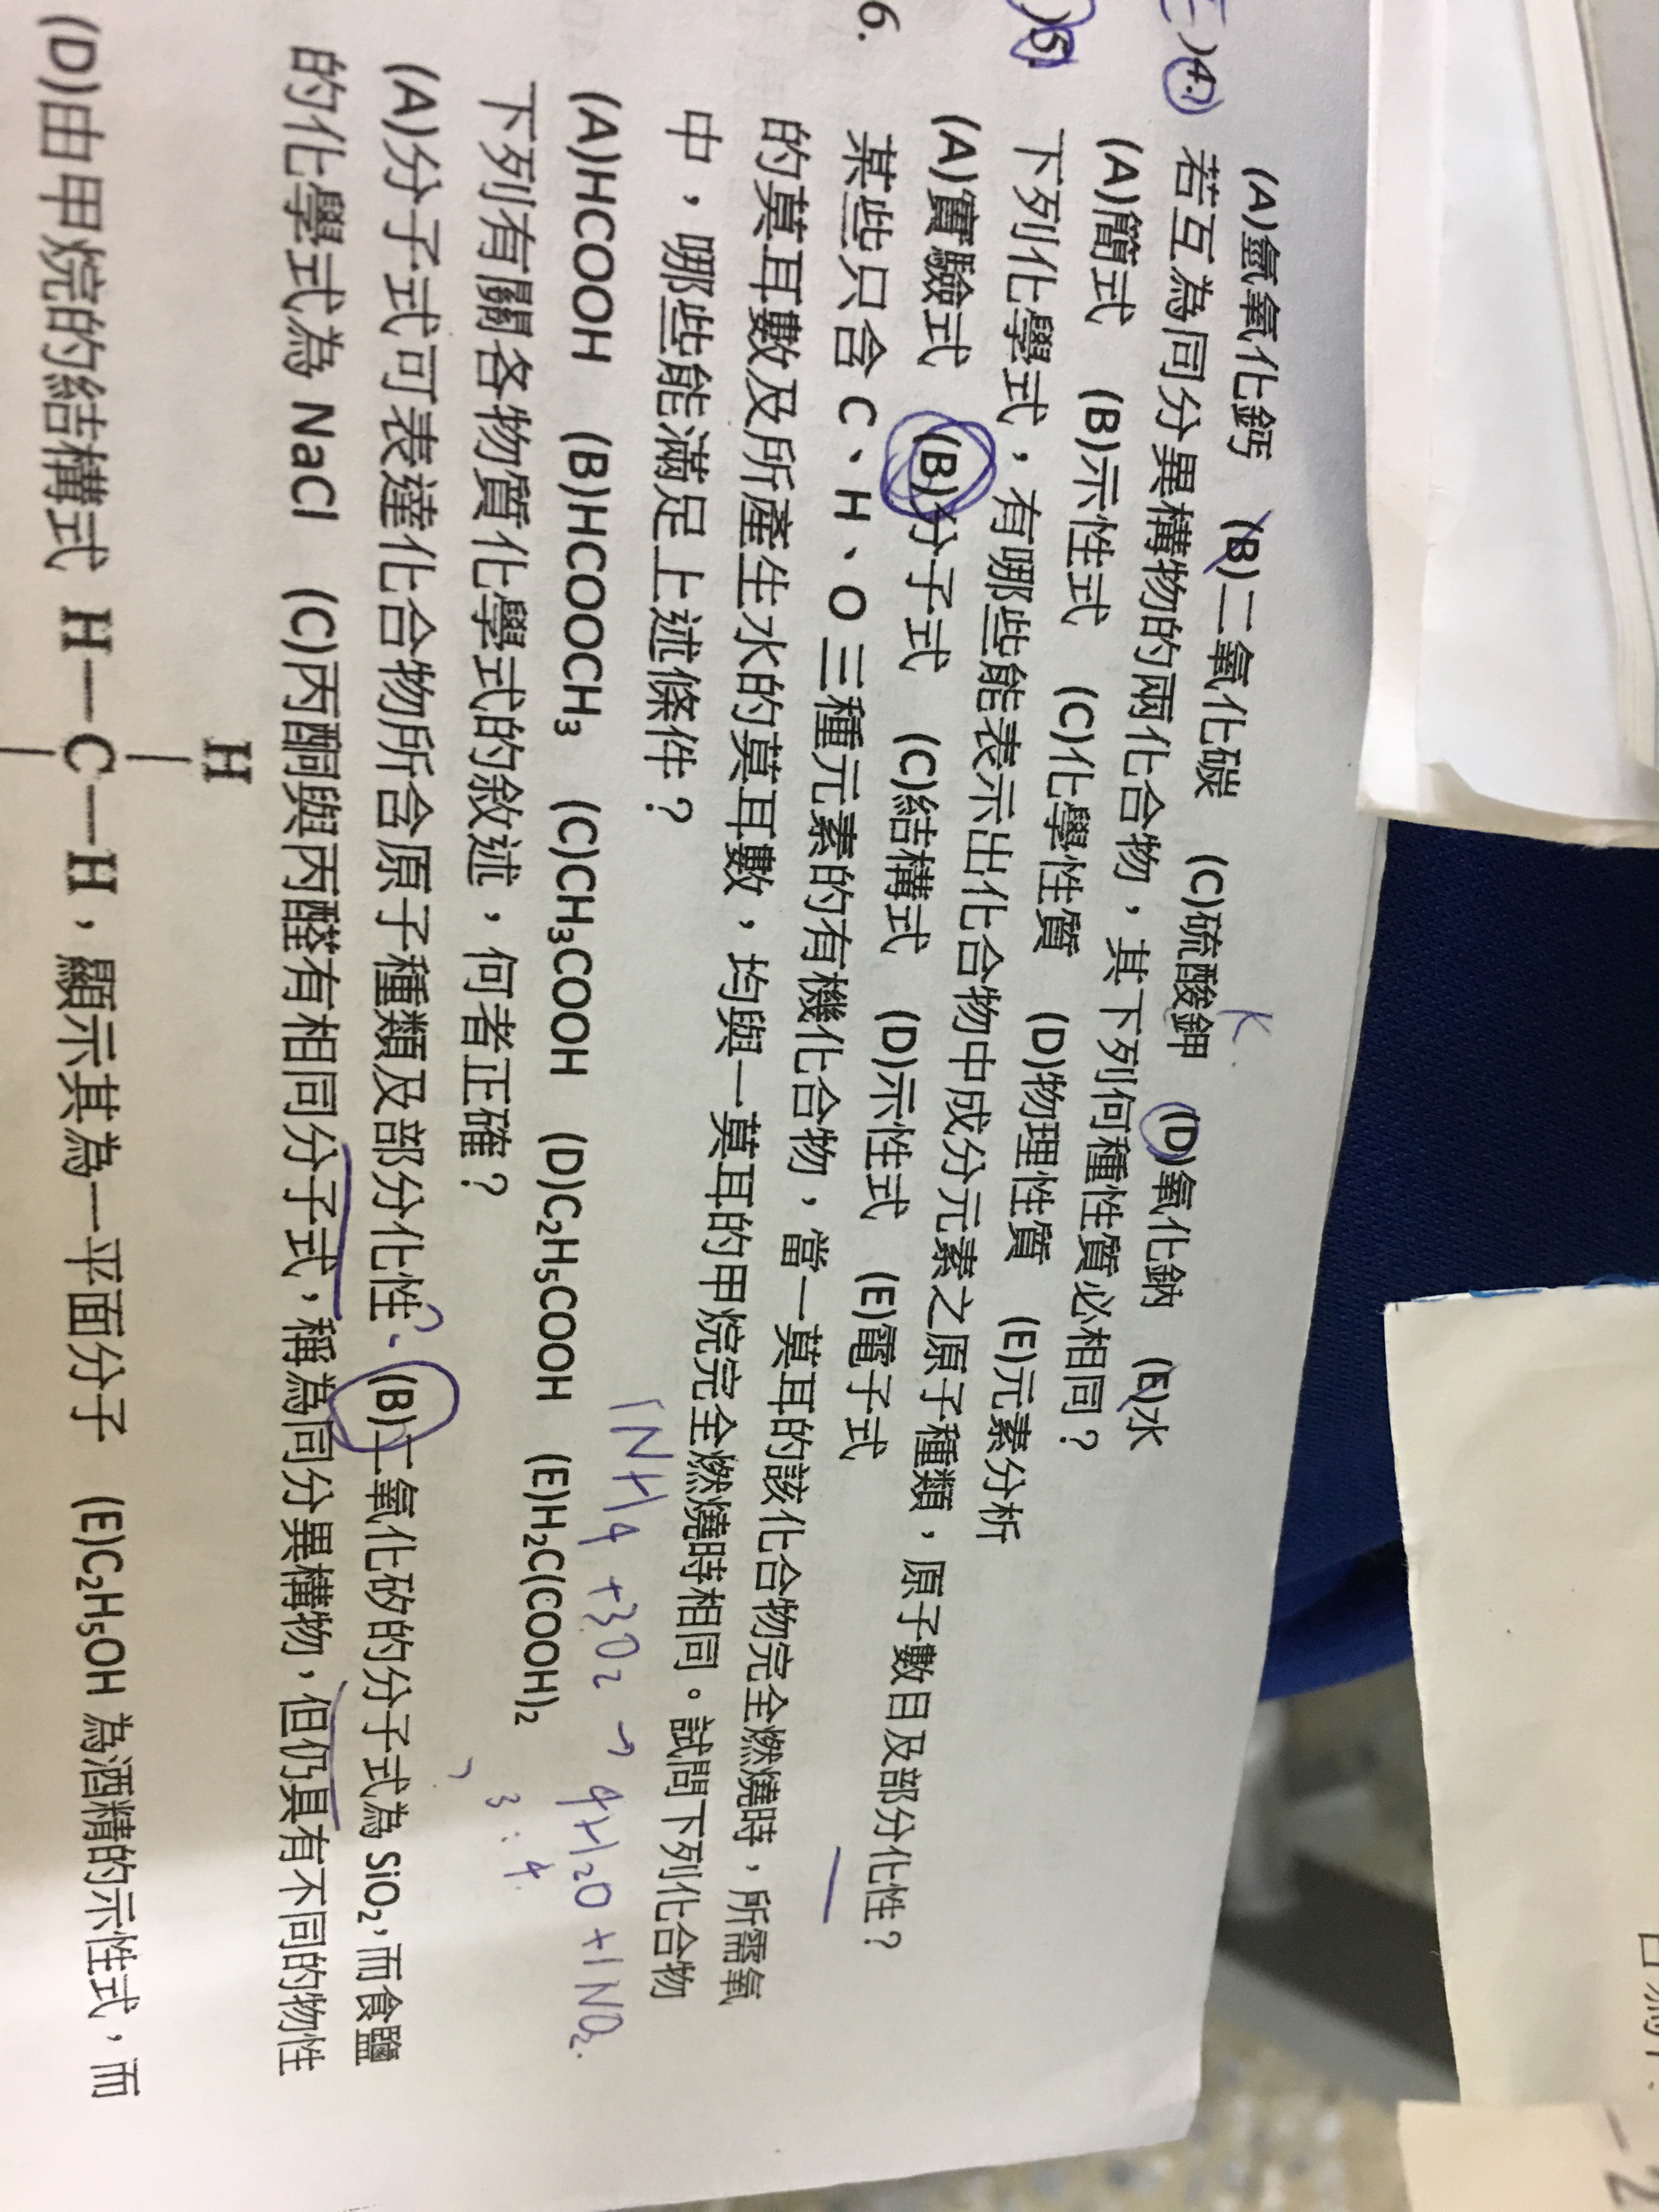 (A)氫氧化鈣 (B)二氧化碳 (C)硫酸鉀 (D)氧化鈉 (E)水
K
)4. 若互為同分異構物的兩化合物，其下列何種性質必相同？
(A)簡式 (B)示性式 (C)化學性質 (D)物理性質 (E)元素分析
)5. 下列化學式，有哪些能表示出化合物中成分元素之原子種類，原子數目及部分化性？
(A)實驗式 (B)分子式 (C)結構式 (D)示性式 (E)電子式
6. 某些只含 C、H、O 三種元素的有機化合物，當一莫耳的該化合物完全燃燒時，所需氧
的莫耳數及所產生水的莫耳數，均與一莫耳的甲烷完全燃燒時相同。試問下列化合物
中，哪些能滿足上述條件？
1NH4 +3O2 → 4H2O +1NO2.
(A)HCOOH (B)HCOOCH₃ (C)CH₃COOH (D)C₂H₅COOH (E)H₂C(COOH)₂
3:4
下列有關各物質化學式的敘述，何者正確？
(A)分子式可表達化合物所含原子種類及部分化性、 (B)二氧化矽的分子式為 SiO₂，而食鹽
的化學式為 NaCl (C)丙酮與丙醛有相同分子式，稱為同分異構物，但仍具有不同的物性
H
(D)由甲烷的結構式 H—C—H，顯示其為一平面分子 (E)C₂H₅OH 為酒精的示性式，而